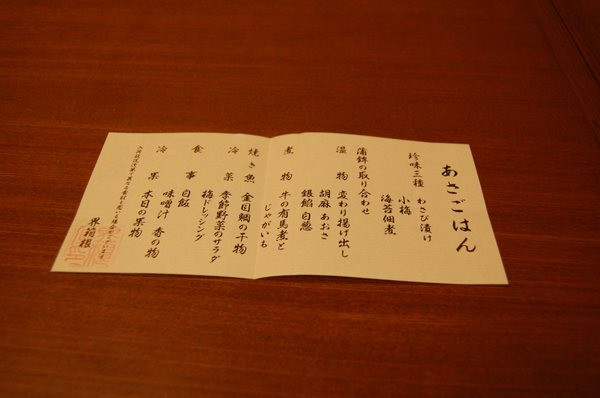 あさごはん
珍味三種 わさび漬け
小梅
海苔佃煮
蒲鉾の取り合わせ
温物 変わり揚げ出し
胡麻 あおさ
銀餡 白葱
煮物 牛の有馬煮と
じゃがいも
焼き魚 金目鯛の干物
冷菜 季節野菜のサラダ
梅ドレッシング
食事 白飯
味噌汁 香の物
冷菓 本日の果物
界箱根